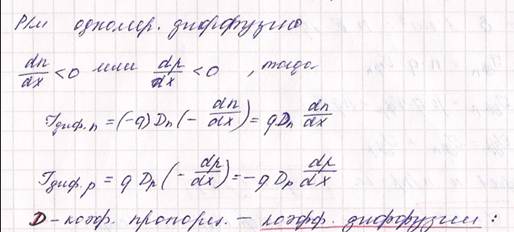 Р/м одномер. диффузию
dn/dx < 0 или dp/dx < 0, тогда
Jдиф.n = (-q) Dn (- dn/dx) = q Dn dn/dx
Jдиф.p = q Dp (- dp/dx) = -q Dp dp/dx
D - коэф. пропорц. - коэфф. диффузии :